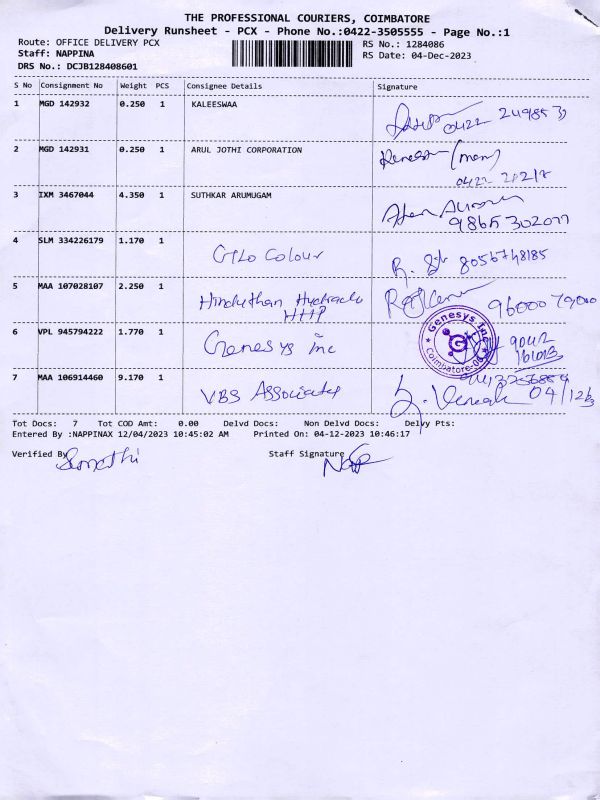 THE PROFESSIONAL COURIERS, COIMBATORE
Delivery Runsheet - PCX - Phone No.:0422-3505555 - Page No.:1
Route: OFFICE DELIVERY PCX
RS No.: 1284086
Staff: NAPPINA
RS Date: 04-Dec-2023
DRS No.: DCJB128408601
S No Consignment No Weight PCS Consignee Details Signature
1 MGD 142932 0.250 1 KALEESWAA
0422
2 MGD 142931 0.250 1 ARUL JOTHI CORPORATION
0422
3 IXM 3467044 4.350 1 SUTHKAR ARUMUGAM
4 SLM 334226179 1.170 1 Glo Colour
8056748185
5 MAA 107028107 2.250 1 Hinduthan Hydraulo
HHP
6 VPL 945794222 1.770 1 Genesys inc
Genesys Inc
7 MAA 106914460 9.170 1 VBS Associates
Tot Docs: 7 Tot COD Amt: 0.00 Delvd Docs: Non Delvd Docs: Delvy Pts:
Entered By :NAPPINAX 12/04/2023 10:45:02 AM Printed On: 04-12-2023 10:46:17
Verified By Staff Signature